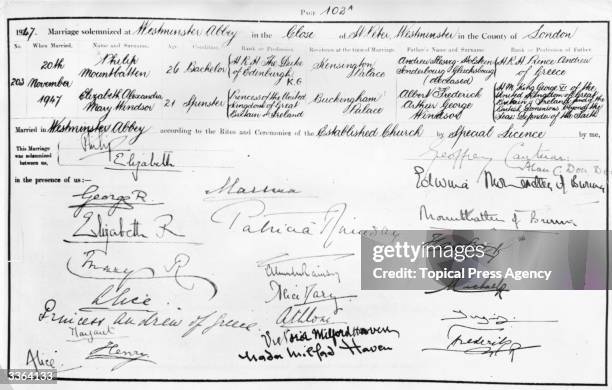 PAGE 102A
1947. Marriage solemnized at Westminster Abbey in the Close of St Peter, Westminster in the County of London
No. When Married. Name and Surname. Age Condition Rank or Profession. Residence at the time of Marriage. Father's Name and Surname. Rank or Profession of Father.
203 20th November 1947
Philip Mountbatten 26 Bachelor H.R.H. The Duke of Edinburgh K.G Kensington Palace Andrew (deceased) H.R.H. Prince Andrew of Greece
Elizabeth Alexandra Mary Windsor 21 Spinster Princess of the United Kingdom of Great Britain & Ireland Buckingham Palace Albert Frederick Arthur George Windsor H.M. King George VI of the United Kingdom of Great Britain & Ireland and the British Dominions beyond the Seas Defender of the Faith
Married in Westminster Abbey according to the Rites and Ceremonies of the Established Church by Special Licence by me,
This Marriage was solemnized between us,
Philip
Elizabeth
Geoffrey Cantuar:
Alan C. Don
in the presence of us:
George R.
Marina
Edwina Mountbatten of Burma
Elizabeth R
Patricia Ramsay
Mountbatten of Burma
Mary R
Alice
Alice Mary
Princess Andrew of Greece
Athlone
Margaret
Henry
Victoria Milford Haven
Nada Milford Haven
Frederik R
Alice
gettyimages
Topical Press Agency
3364133